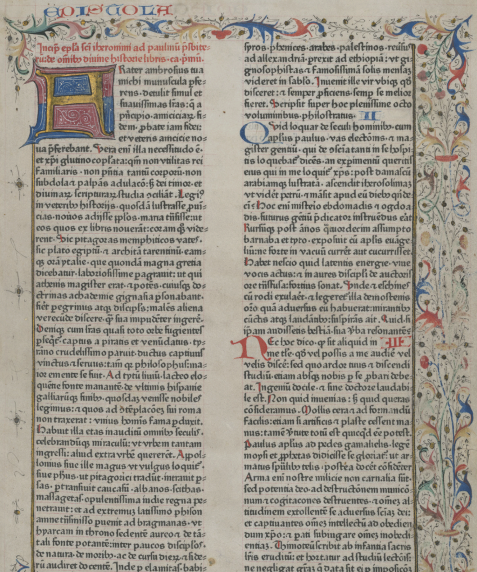 EPISTOLA
Incip epl̄a sc̄i iheronimi ad paulinū presbiterū:
de omībȝ diuine historie libris · ca · pmū.
Frater ambrosius tua
michi munuscula pferens ·
detulit simul et
suauissimas lr̄as: q̄ a
principio amiciciaꝝ fidem ·
phate iam fidei:
et veteris amicicie noua
p̄ferebant. Vera em̄ illa necessitudo ē ·
et xp̄i glutino copulata: qm̄ non vtilitas rei
familiaris · non pn̄tia tantū corporū · non
subdola et palpās adulacō: sed dei timor · et
diuinaꝝ scripturaꝝ studia cōciliāt. Legim͛
in veteribȝ historijs · quosdā lustrasse puincias ·
nouos adijsse pplos · maria trāsisse: ut
eos quos ex libris nouerāt: coram q̄ȝ viderent.
Sic pitagoras memphiticos vates ·
sic plato egiptū · et architā tarentinū · eamqȝ
orā ytalie · que quondā magna grecia
dicebatur: laboriosissime pagrauit: ut qui
athenis magister erat · et potēs · cuiusqȝ doctrinas
achademie gignasia psonabant ·
fieret pegrinus atqȝ discipulus: malēs aliena
verecūde discere: q̄ sua impudēter ingerere.
Deniqȝ cum lr̄as quasi toto orbe fugientes
psequit · captus a piratis et venūdatus · tyranno
crudelissimo paruit · ductus captiuus
vinctus et seruus: tamē qȝ philosophus maiore
emente se fuit. Ad tytū liuiū · lacteo eloquēne
fonte manantē · de vltimis hispanie
galliarūqȝ finibȝ · quosdaꝫ venisse nobiles
legimus: et quos ad ōtēplacōeꝫ sui roma
non traxerat: vnius hoīs fama pduxit.
Habuit illa etas inauditū omībȝ seculis ·
celebrandūqȝ miraculū: ut vrbem tantam
ingressi: aliud extra vrbē quererēt. Appollonius
siue ille magus vt vulgus loquit͛ ·
siue phūs · ut pitagorici tradūt · intrauit psas ·
ptransiuit caucasū · albanos · scithas ·
massagetas · opulentissima indie regna penetrauit:
et ad extremuꝫ latissimo phison
amne trāsmisso puenit ad bragmanas · vt
hyarcam in throno sedentē aureo · et de tātali
fonte potantē · inter paucos discipulos ·
de natura · de moribȝ · ac de cursu dieꝝ et siderū
audiret docentē. Inde p elamitas · babilonios
spros · phenices · arabes · palestinos · reuersus
ad alexandriā · prexit ad ethiopiā: vt gignosophistas
et famosissimā solis mensaꝫ
videret in sabulo. Inuenit ille vir vbiqȝ qd̓
disceret: et semper pficiens · semp se melior
fieret. Scripsit super hoc plenissime octo
voluminibus · philostratus. II
Quid loquar de seculi hominibȝ · cum
apl̄us paulus · vas electōnis · et magister
gentiū · qui de ōsciā tanti in se hospitis
loquebat͛ dicēs · an experimentū queritis
eius qui in me loquit͛ xp̄s: post damascū
arabiamqȝ lustratā · ascendit iherosolimaꝫ
vt videret petrū · et māsit apud eū diebȝ qn̄decī.
Hoc enī misterio ebdomadis et ogdoadis ·
futurus gentiū p̄dicator instruēdus erat.
Rursūqȝ post ānos q̄tuordecim assumpto
barnaba et tyto · exposuit cū aplis euāgeliū:
ne forte in vacuū curreret aut cucurrisset.
Habet nescio quid latentis energie · viue
vocis actus: et in aures discipli de auctoris
ore trāsfusa: fortius sonat. Vnde et eschines
cū rodi exularet · et legeret͛ illa demostenis
orō quā aduersus eū habuerat · mirantibȝ
cūctis atqȝ laudātibȝ · suspirās ait. Quid si
ipam audissetis bestiā · sua verba resonantē?
Nec hoc dico · qȝ sit aliquid in III
me tle · qd̓ vel possis a me audire vel
velis discere: sed quo ardor tuus et discendi
studiū · etiam absqȝ nobis p se phari debeat.
Ingeniū docile · et sine doctore laudabile
est. Non quid inuenias: sed quid queras
cōsideramus. Mollis cera et ad formādū
facilis: etiam si artificis et plaste cessent manus:
tamē virtute totū est quicqd̓ eē potest.
Paulus apl̄us ad pedes gamalielis · legem
moysi et ꝓphetas didicisse se gloriat͛: ut armatus
spūalibȝ telis · postea docet cōfidēter
Arma em̄ nostre milicie non carnalia sunt:
sed potentia deo · ad destructōnem municionum:
cogitacōnes destruentes · et omnē altitudinem
extollentē se aduersus sciaꝫ dei:
et captiuantes omnē intellectū ad obediendum
xp̄o: et parati subiugare omnē inobedientiaꝫ.
Thimotheū scribit ab infantia sacris
lr̄is eruditū: et hortatur ad studiū lectōis:
ne negligat grām q̄ data sit ei p impositōeꝫ